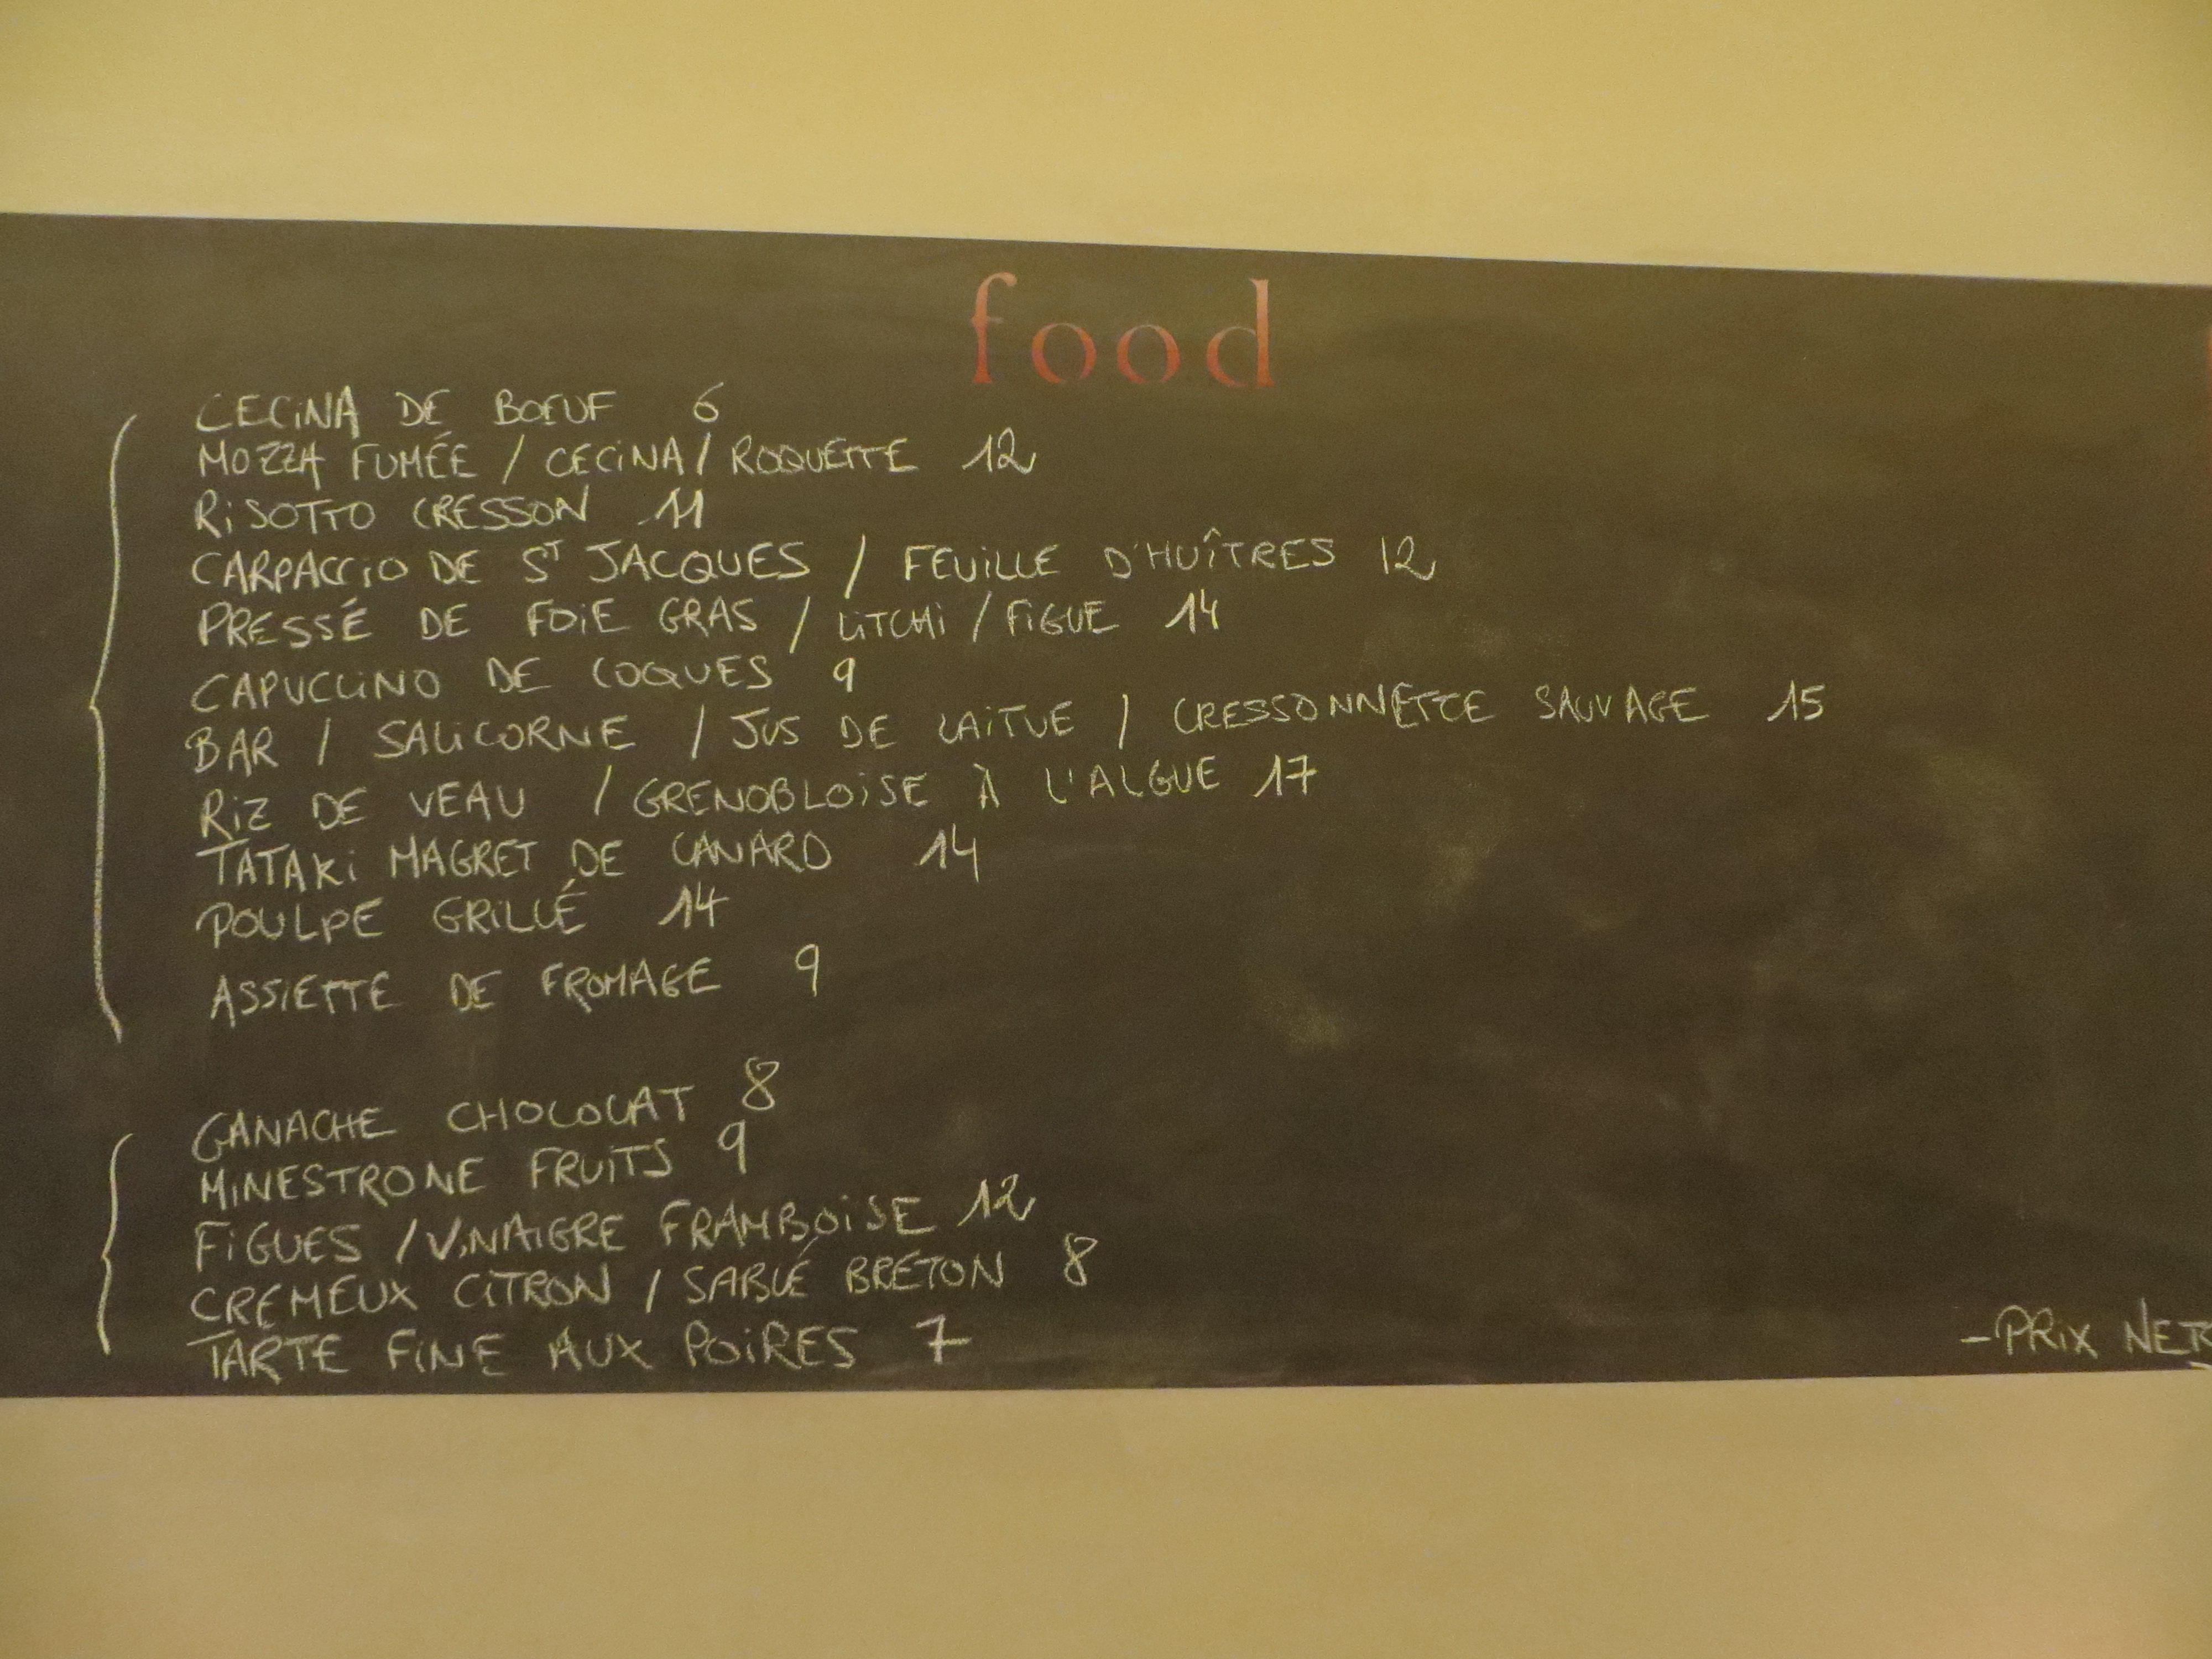 food
CECINA DE BŒUF 6
MOZZA FUMÉE / CECINA / ROQUETTE 12
RISOTTO CRESSON 11
CARPACCIO DE ST JACQUES / FEUILLE D'HUÎTRES 12
PRESSÉ DE FOIE GRAS / LITCHI / FIGUE 14
CAPUCCINO DE COQUES 9
BAR / SALICORNE / JUS DE LAITUE / CRESSONNETTE SAUVAGE 15
RIZ DE VEAU / GRENOBLOISE À L'ALGUE 17
TATAKI MAGRET DE CANARD 14
POULPE GRILLÉ 14
ASSIETTE DE FROMAGE 9
GANACHE CHOCOLAT 8
MINESTRONE FRUITS 9
FIGUES / VINAIGRE FRAMBOISE 12
CREMEUX CITRON / SABLÉ BRETON 8
TARTE FINE AUX POIRES 7
- PRIX NETS